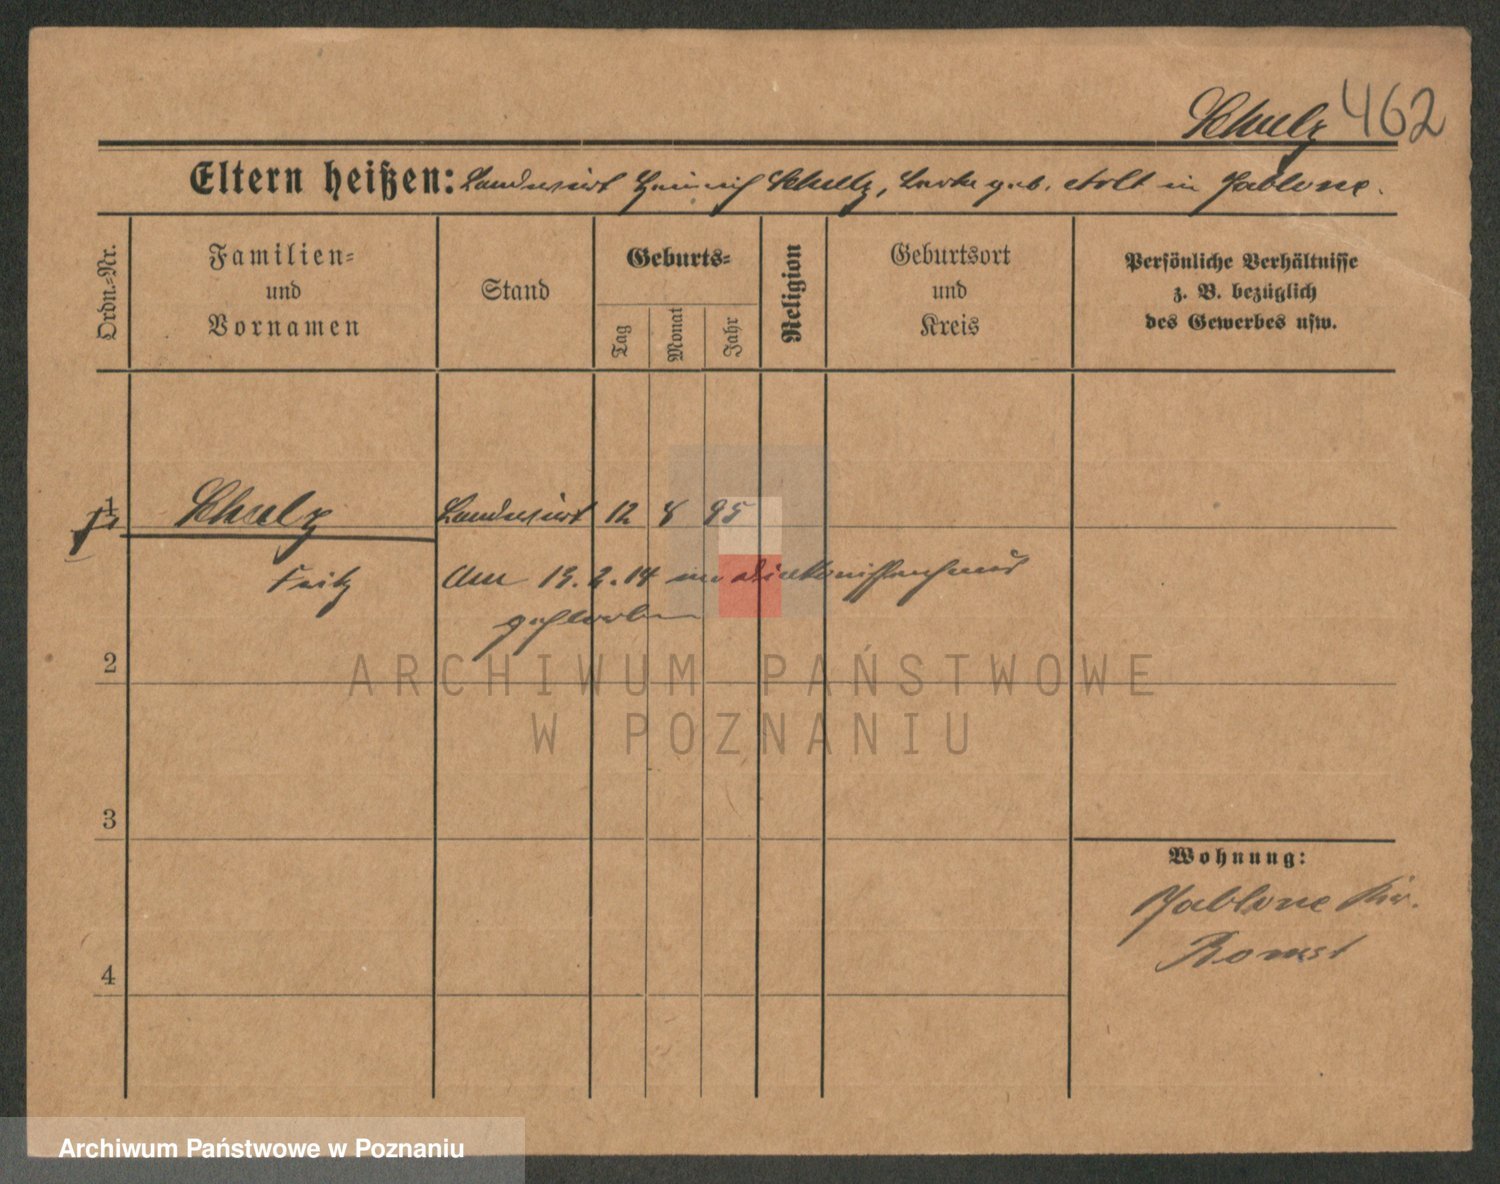 Schulz 462
Eltern heißen: Landwirt Heinrich Schulz, geb. in Jablone.
Ordn.-Nr.
Familien-
und
Vornamen
Stand
Geburts-
Tag
Monat
Jahr
Religion
Geburtsort
und
Kreis
Persönliche Verhältnisse
z. B. bezüglich
des Gewerbes usw.
1
Schulz Landwirt 12 8 95
Fritz Am 13.2.14 im Diakonissenhaus
gestorben
2
ARCHIWUM PAŃSTWOWE
W POZNANIU
3
Wohnung:
Jablone Kr.
Bomst
4
Archiwum Państwowe w Poznaniu